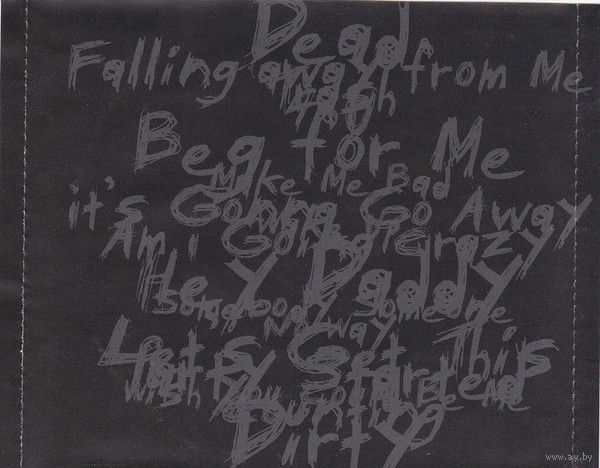 Dead
Falling away from Me
Trash
4 U
Beg for Me
Make Me Bad
it's Gonna Go Away
Am i Going Crazy
Hey Daddy
Somebody Someone
No Way
Let's Get This
Party Started
Wish You Could Be Me
Counting
Dirty
www.ay.by